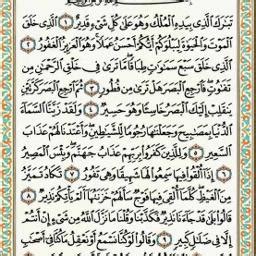 تَبَٰرَكَ ٱلَّذِي بِيَدِهِ ٱلۡمُلۡكُ وَهُوَ عَلَىٰ كُلِّ شَيۡءٖ قَدِيرٌ ١ ٱلَّذِي خَلَقَ
ٱلۡمَوۡتَ وَٱلۡحَيَوٰةَ لِيَبۡلُوَكُمۡ أَيُّكُمۡ أَحۡسَنُ عَمَلٗا وَهُوَ ٱلۡعَزِيزُ ٱلۡغَفُورُ ٢
ٱلَّذِي خَلَقَ سَبۡعَ سَمَٰوَٰتٖ طِبَاقٗا مَّا تَرَىٰ فِي خَلۡقِ ٱلرَّحۡمَٰنِ مِن
تَفَٰوُتٖ فَٱرۡجِعِ ٱلۡبَصَرَ هَلۡ تَرَىٰ مِن فُطُورٖ ٣ ثُمَّ ٱرۡجِعِ ٱلۡبَصَرَ كَرَّتَيۡنِ
يَنقَلِبۡ إِلَيۡكَ ٱلۡبَصَرُ خَاسِئٗا وَهُوَ حَسِيرٞ ٤ وَلَقَدۡ زَيَّنَّا ٱلسَّمَآءَ
ٱلدُّنۡيَا بِمَصَٰبِيحَ وَجَعَلۡنَٰهَا رُجُومٗا لِّلشَّيَٰطِينِ وَأَعۡتَدۡنَا لَهُمۡ عَذَابَ
ٱلسَّعِيرِ ٥ وَلِلَّذِينَ كَفَرُواْ بِرَبِّهِمۡ عَذَابُ جَهَنَّمَ وَبِئۡسَ ٱلۡمَصِيرُ
٦ إِذَآ أُلۡقُواْ فِيهَا سَمِعُواْ لَهَا شَهِيقٗا وَهِيَ تَفُورُ ٧ تَكَادُ تَمَيَّزُ
مِنَ ٱلۡغَيۡظِ كُلَّمَآ أُلۡقِيَ فِيهَا فَوۡجٞ سَأَلَهُمۡ خَزَنَتُهَآ أَلَمۡ يَأۡتِكُمۡ نَذِيرٞ ٨
قَالُواْ بَلَىٰ قَدۡ جَآءَنَا نَذِيرٞ فَكَذَّبۡنَا وَقُلۡنَا مَا نَزَّلَ ٱللَّهُ مِن شَيۡءٍ إِنۡ أَنتُمۡ
إِلَّا فِي ضَلَٰلٖ كَبِيرٖ ٩ وَقَالُواْ لَوۡ كُنَّا نَسۡمَعُ أَوۡ نَعۡقِلُ مَا كُنَّا فِيٓ أَصۡحَٰبِ